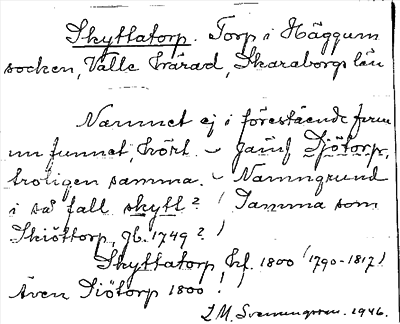 Skyttatorp. Torp i Häggum
socken, Valle härad, Skaraborgs län
Namnet ej i förestående form
nu funnet, hört. – Jämf Djötorp,
troligen samma. – Namngrund
i så fall skytt? (Samma som
Skiöttorp, jb. 1749?)
Skyttatorp, hf. 1800 (1790-1817)
Även Siötorp 1800!
L.M. Svenungsson. 1946.